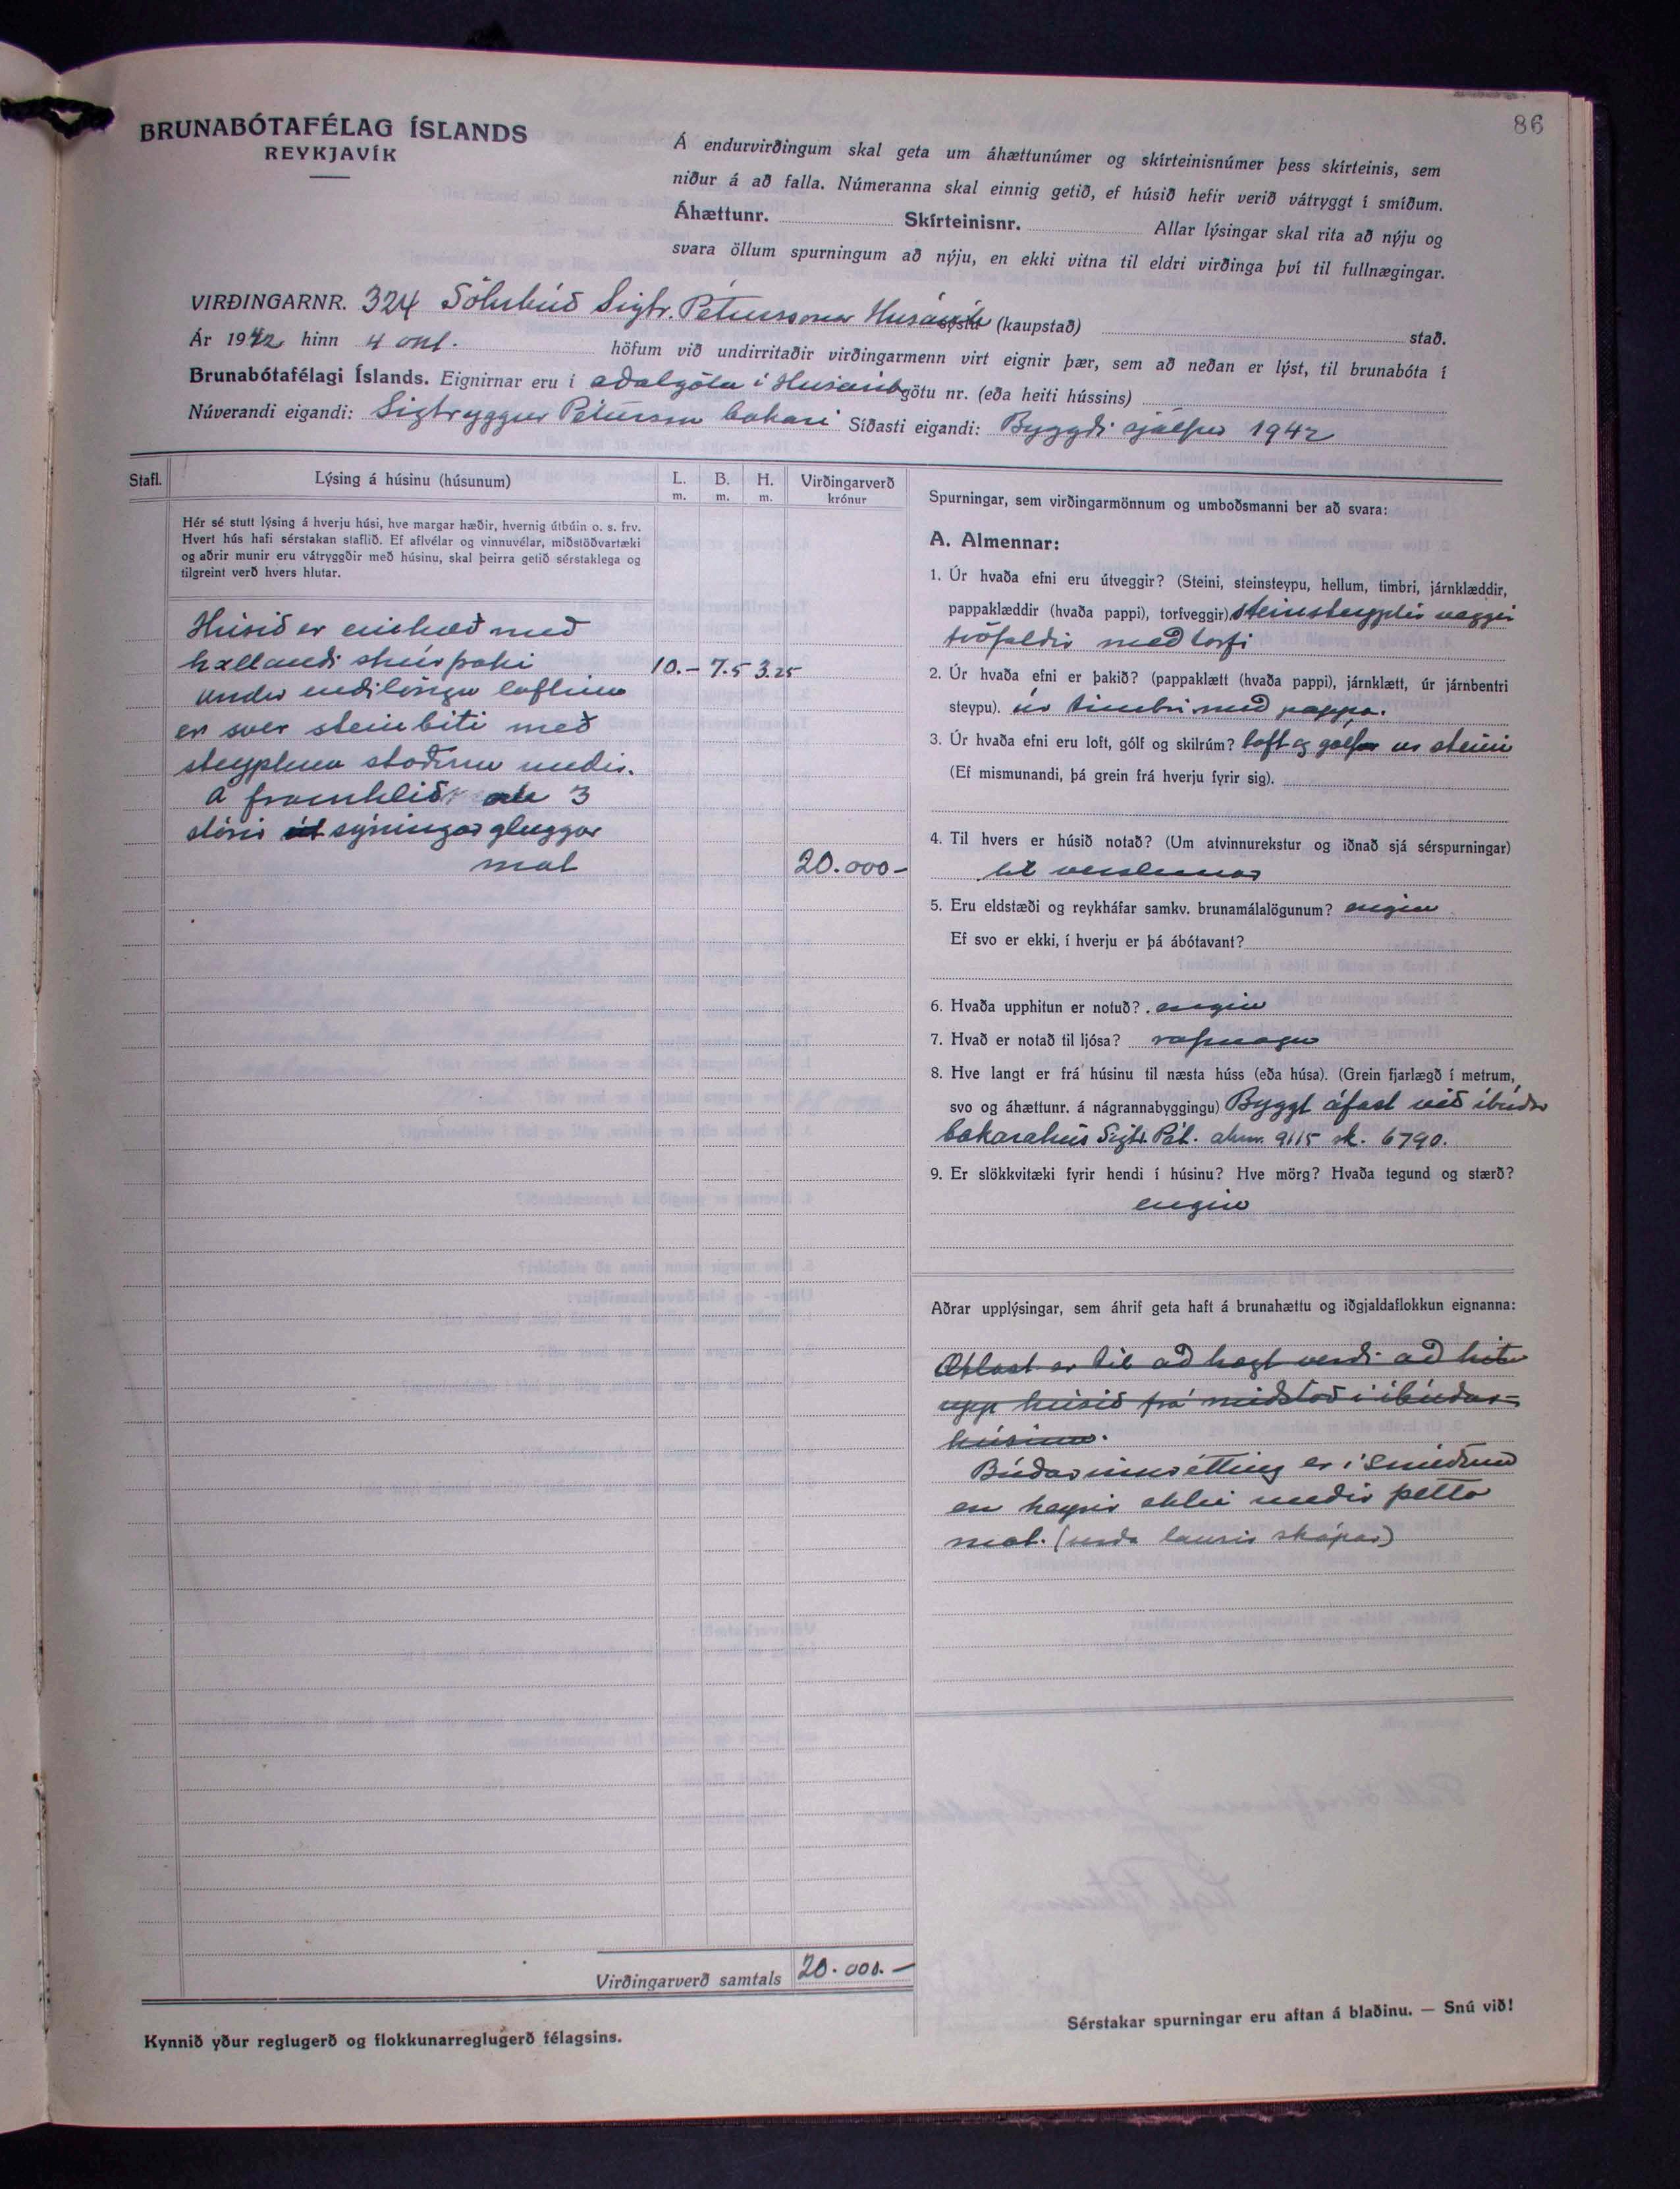 86
BRUNABÓTAFÉLAG ÍSLANDS
REYKJAVÍK
Á endurvirðingum skal geta um áhættunúmer og skírteinisnúmer þess skírteinis, sem
niður á að falla. Númeranna skal einnig getið, ef húsið hefir verið vátryggt í smíðum.
Áhættunr. Skírteinisnr. Allar lýsingar skal rita að nýju og
svara öllum spurningum að nýju, en ekki vitna til eldri virðinga því til fullnægingar.
VIRÐINGARNR. 324 Sölubúð Sigtr. Péturssonar Húsavík sýslu (kaupstað) stað.
Ár 1942 hinn 4 okt. höfum við undirritaðir virðingarmenn virt eignir þær, sem að neðan er lýst, til brunabóta í
Brunabótafélagi Íslands. Eignirnar eru í aðalgötu í Húsavík götu nr. (eða heiti hússins)
Núverandi eigandi: Sigtryggur Pétursson bakari Síðasti eigandi: Byggði sjálfur 1942
Stafl. Lýsing á húsinu (húsunum) L. m. B. m. H. m. Virðingarverð krónur
Hér sé stutt lýsing á hverju húsi, hve margar hæðir, hvernig útbúin o. s. frv.
Hvert hús hafi sérstakan staflið. Ef aflvélar og vinnuvélar, miðstöðvartæki
og aðrir munir eru vátryggðir með húsinu, skal þeirra getið sérstaklega og
tilgreint verð hvers hlutar.
Húsið er einhæð með
hallandi skúrþaki 10.- 7.5 3.25
undir endilöngu loftinu
er sver steinbiti með
steyptum stoðum undir.
Á framhlið 3
stórir sýningargluggar
mat 20.000-
Virðingarverð samtals 20.000.-
Kynnið yður reglugerð og flokkunarreglugerð félagsins.
Spurningar, sem virðingarmönnum og umboðsmanni ber að svara:
A. Almennar:
1. Úr hvaða efni eru útveggir? (Steini, steinsteypu, hellum, timbri, járnklæddir,
pappaklæddir (hvaða pappi), torfveggir) steinsteyptir veggir
tvöfaldir með torfi
2. Úr hvaða efni er þakið? (pappaklætt (hvaða pappi), járnklætt, úr járnbentri
steypu). úr timbri með pappa.
3. Úr hvaða efni eru loft, gólf og skilrúm? loft og gólf úr steini
(Ef mismunandi, þá grein frá hverju fyrir sig).
4. Til hvers er húsið notað? (Um atvinnurekstur og iðnað sjá sérspurningar)
til verslunar
5. Eru eldstæði og reykháfar samkv. brunamálalögunum? engin
Ef svo er ekki, í hverju er þá ábótavant?
6. Hvaða upphitun er notuð? engin
7. Hvað er notað til ljósa? rafmagn
8. Hve langt er frá húsinu til næsta húss (eða húsa). (Grein fjarlægð í metrum,
svo og áhættunr. á nágrannabyggingu) Byggt áfast við íbúðar
bakarahús Sigtr. Pét. ahnr. 9115 sk. 6790.
9. Er slökkvitæki fyrir hendi í húsinu? Hve mörg? Hvaða tegund og stærð?
engin
Aðrar upplýsingar, sem áhrif geta haft á brunahættu og iðgjaldaflokkun eignanna:
Ætlast er til að hægt verði að hita
upp húsið frá miðstöð í íbúðar-
húsinu.
Búðarinnrétting er í smíðum
en heyrir ekki undir þetta
mat. (verða lausir skápar)
Sérstakar spurningar eru aftan á blaðinu. — Snú við!